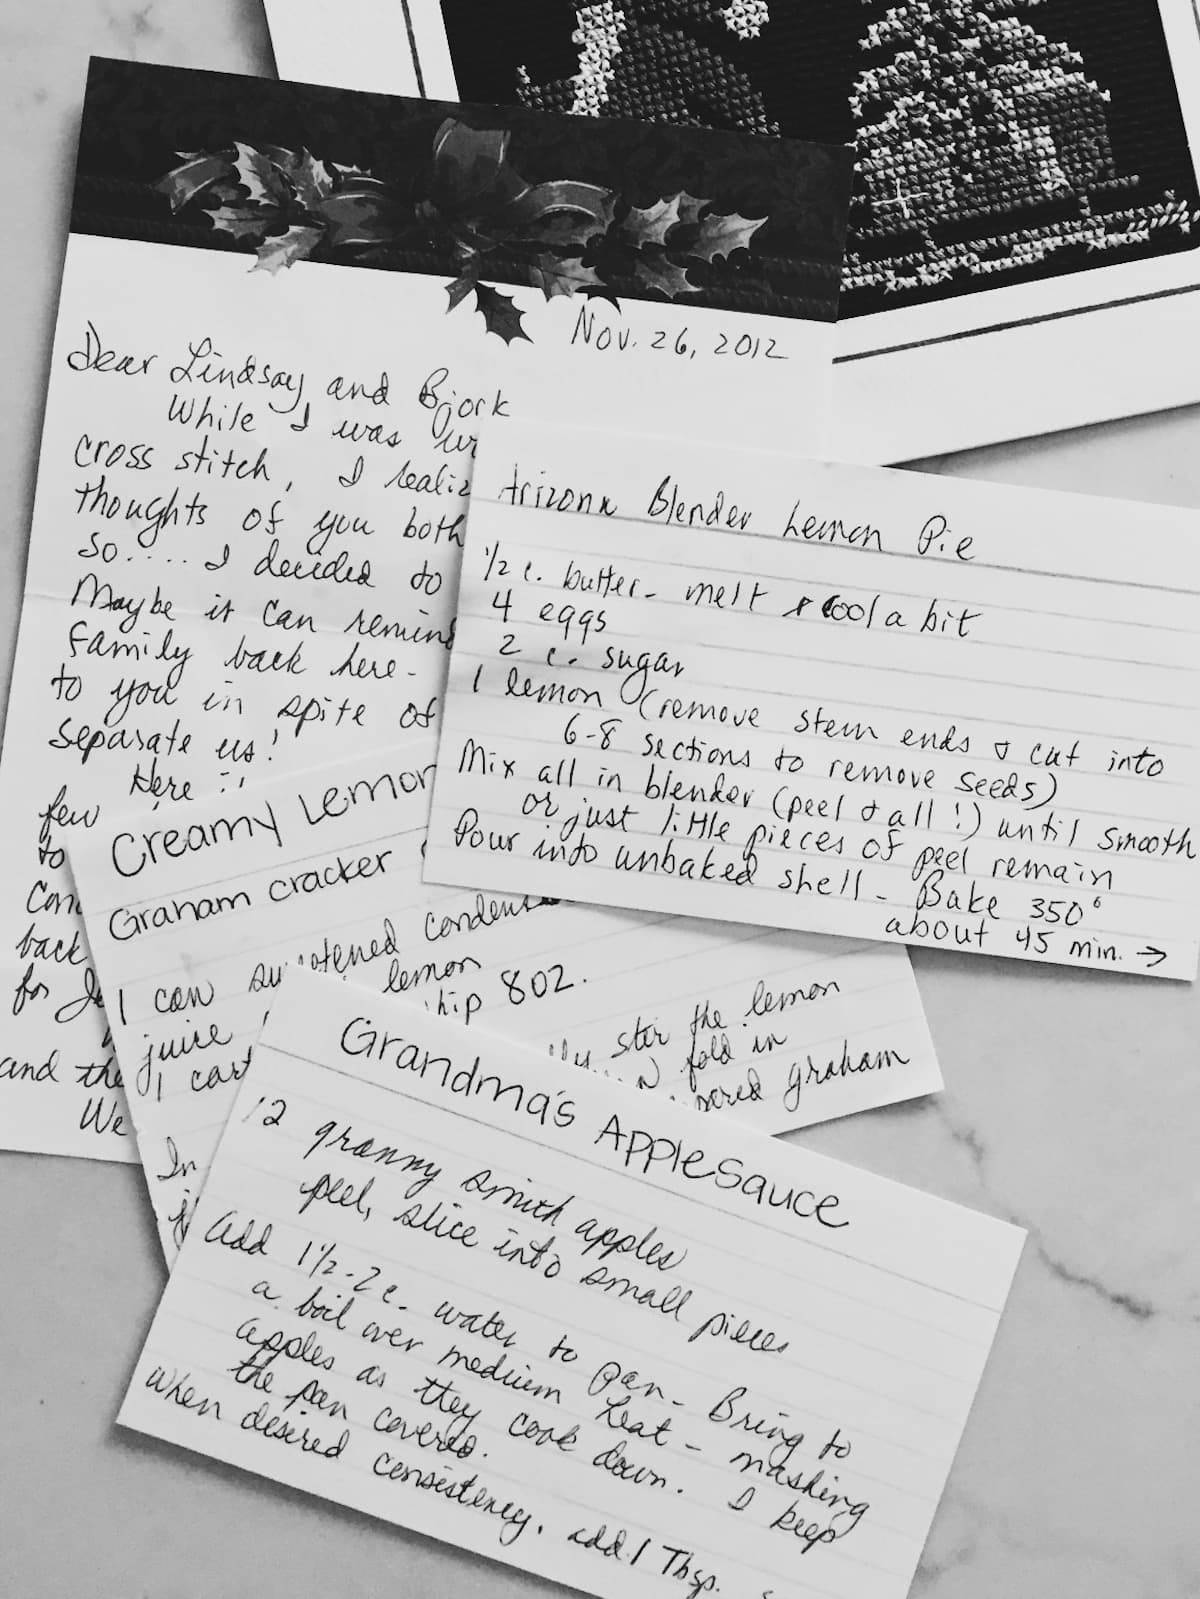 Nov. 26, 2012
Dear Lindsay and Bjork
While I was
cross stitch, I
thoughts of you both
So..... I decided to
Maybe it can remind
family back here-
to you in spite of
separate us!
Here
few
to
back
for
and the
We
Arizona Blender Lemon Pie
1/2 c. butter - melt & cool a bit
4 eggs
2 c. sugar
1 lemon (remove stem ends & cut into
6-8 sections to remove seeds)
Mix all in blender (peel & all!) until smooth
or just little pieces of peel remain
Pour into unbaked shell - Bake 350°
about 45 min. →
Creamy Lemon
Graham cracker
1 can
lemon
juice
8 oz.
1
stir the lemon
fold in
graham
In
Grandma's Applesauce
12 granny smith apples
peel, slice into small pieces
Add 1 1/2-2 c. water to pan - Bring to
a boil over medium heat - mashing
apples as they cook down. I keep
the pan covered.
When desired consistency, add 1 Tbsp.